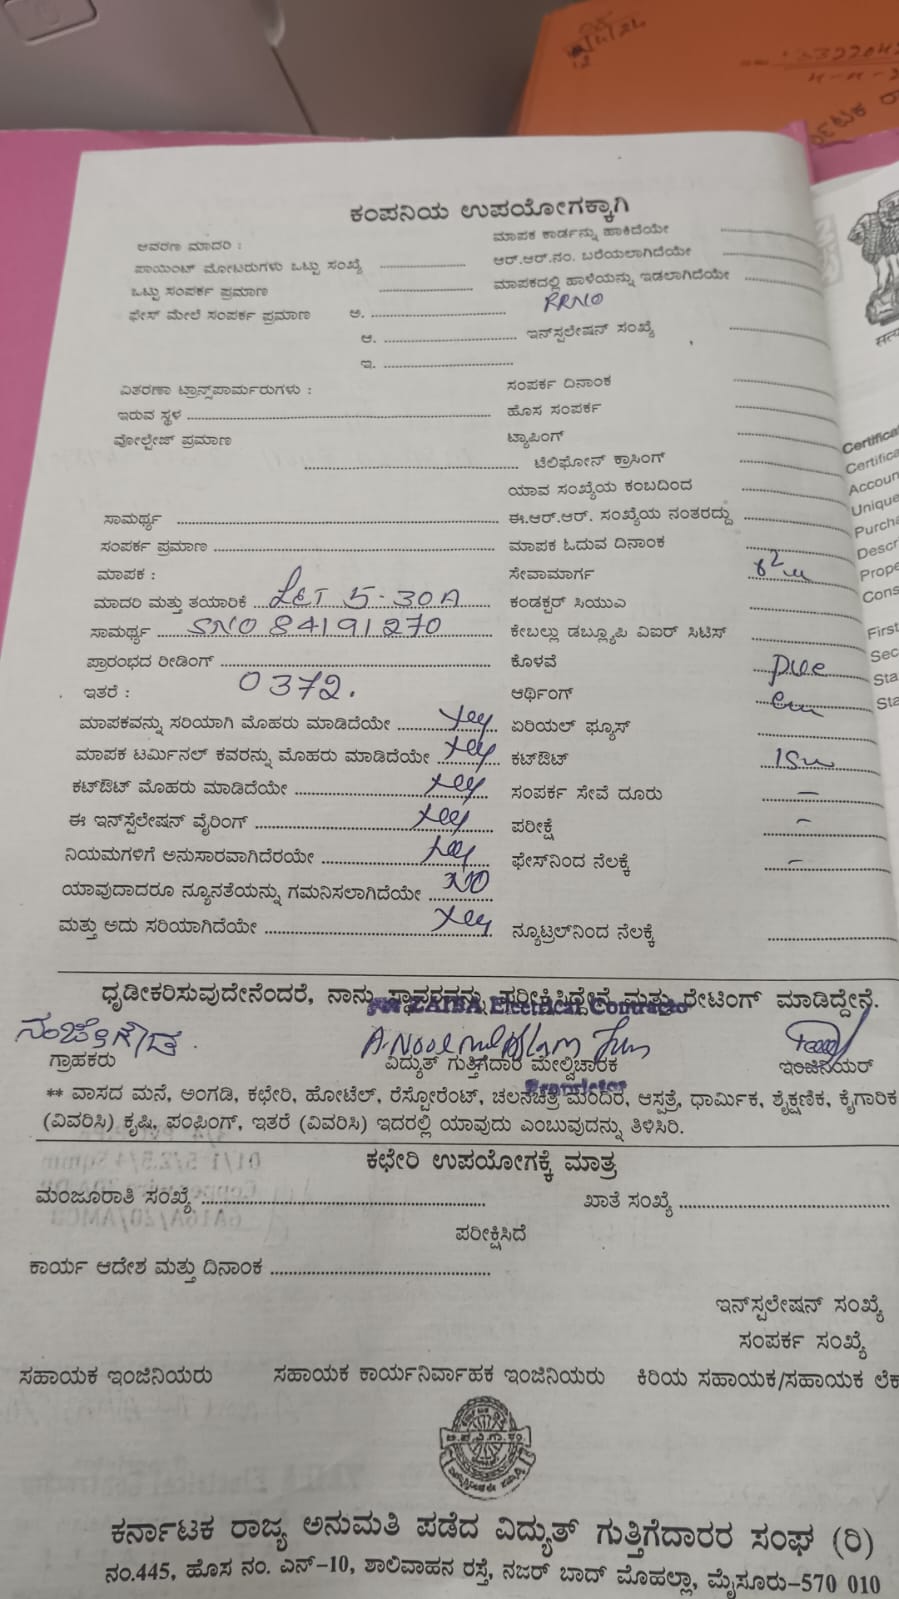 12/4/24
ಕಂಪನಿಯ ಉಪಯೋಗಕ್ಕಾಗಿ
ಆವರಣ ಮಾದರಿ : ಮಾಪಕ ಕಾರ್ಡನ್ನು ಹಾಕಿದೆಯೇ
ಪಾಯಿಂಟ್ ಮೋಟರುಗಳು ಒಟ್ಟು ಸಂಖ್ಯೆ ಆರ್.ಆರ್.ನಂ. ಬರೆಯಲಾಗಿದೆಯೇ
ಒಟ್ಟು ಸಂಪರ್ಕ ಪ್ರಮಾಣ ಮಾಪಕದಲ್ಲಿ ಹಾಳೆಯನ್ನು ಇಡಲಾಗಿದೆಯೇ
ಫೇಸ್ ಮೇಲೆ ಸಂಪರ್ಕ ಪ್ರಮಾಣ ಅ. RRNO
ಆ. ಇನ್‌ಸ್ಪಲೇಷನ್ ಸಂಖ್ಯೆ
ಇ.
ವಿತರಣಾ ಟ್ರಾನ್ಸ್‌ಪಾರ್ಮರುಗಳು : ಸಂಪರ್ಕ ದಿನಾಂಕ
ಇರುವ ಸ್ಥಳ ಹೊಸ ಸಂಪರ್ಕ
ವೋಲ್ಟೇಜ್ ಪ್ರಮಾಣ ಟ್ಯಾಪಿಂಗ್
ಟೆಲಿಫೋನ್ ಕ್ರಾಸಿಂಗ್
ಯಾವ ಸಂಖ್ಯೆಯ ಕಂಬದಿಂದ
ಸಾಮರ್ಥ್ಯ ಈ.ಆರ್.ಆರ್. ಸಂಖ್ಯೆಯ ನಂತರದ್ದು
ಸಂಪರ್ಕ ಪ್ರಮಾಣ ಮಾಪಕ ಓದುವ ದಿನಾಂಕ
ಮಾಪಕ : ಸೇವಾಮಾರ್ಗ
ಮಾದರಿ ಮತ್ತು ತಯಾರಿಕೆ L&T 5-30A ಕಂಡಕ್ಟರ್ ಸಿಯುಎ
ಸಾಮರ್ಥ್ಯ SNO 84191270 ಕೇಬಲ್ಲು ಡಬ್ಲ್ಯೂಪಿ ವಿಐರ್ ಸಿಟಿಸ್
ಪ್ರಾರಂಭದ ರೀಡಿಂಗ್ ಕೊಳವೆ PVC
ಇತರೆ : 0372. ಆರ್ಥಿಂಗ್
ಮಾಪಕವನ್ನು ಸರಿಯಾಗಿ ಮೊಹರು ಮಾಡಿದೆಯೇ Yes ಏರಿಯಲ್ ಫ್ಯೂಸ್
ಮಾಪಕ ಟರ್ಮಿನಲ್ ಕವರನ್ನು ಮೊಹರು ಮಾಡಿದೆಯೇ Yes ಕಟ್‌ಔಟ್
ಕಟ್‌ಔಟ್ ಮೊಹರು ಮಾಡಿದೆಯೇ Yes ಸಂಪರ್ಕ ಸೇವೆ ದೂರು –
ಈ ಇನ್‌ಸ್ಪೆಲೇಷನ್ ವೈರಿಂಗ್ Yes ಪರೀಕ್ಷೆ –
ನಿಯಮಗಳಿಗೆ ಅನುಸಾರವಾಗಿದೆರಯೇ Yes ಫೇಸ್‌ನಿಂದ ನೆಲಕ್ಕೆ –
ಯಾವುದಾದರೂ ನ್ಯೂನತೆಯನ್ನು ಗಮನಿಸಲಾಗಿದೆಯೇ NO
ಮತ್ತು ಅದು ಸರಿಯಾಗಿದೆಯೇ Yes ನ್ಯೂಟ್ರಲ್‌ನಿಂದ ನೆಲಕ್ಕೆ
ಧೃಡೀಕರಿಸುವುದೇನೆಂದರೆ, ನಾನು ಸ್ಥಾವರವನ್ನು ಪರೀಕ್ಷಿಸಿದ್ದೇನೆ ಮತ್ತು ರೇಟಿಂಗ್ ಮಾಡಿದ್ದೇನೆ.
For ZAIBA Electrical Contractor
ನಂಜೇಗೌಡ.
ಗ್ರಾಹಕರು ವಿದ್ಯುತ್ ಗುತ್ತಿಗೆದಾರ ಮೇಲ್ವಿಚಾರಕ ಇಂಜಿನಿಯರ್
Proprietor
** ವಾಸದ ಮನೆ, ಅಂಗಡಿ, ಕಛೇರಿ, ಹೋಟೆಲ್, ರೆಸ್ಟೋರೆಂಟ್, ಚಲನಚಿತ್ರ ಮಂದಿರ, ಆಸ್ಪತ್ರೆ, ಧಾರ್ಮಿಕ, ಶೈಕ್ಷಣಿಕ, ಕೈಗಾರಿಕ
(ವಿವರಿಸಿ) ಕೃಷಿ, ಪಂಪಿಂಗ್, ಇತರೆ (ವಿವರಿಸಿ) ಇದರಲ್ಲಿ ಯಾವುದು ಎಂಬುವುದನ್ನು ತಿಳಿಸಿರಿ.
ಕಛೇರಿ ಉಪಯೋಗಕ್ಕೆ ಮಾತ್ರ
ಮಂಜೂರಾತಿ ಸಂಖ್ಯೆ ಖಾತೆ ಸಂಖ್ಯೆ
ಪರೀಕ್ಷಿಸಿದೆ
ಕಾರ್ಯ ಆದೇಶ ಮತ್ತು ದಿನಾಂಕ
ಇನ್‌ಸ್ಪಲೇಷನ್ ಸಂಖ್ಯೆ
ಸಂಪರ್ಕ ಸಂಖ್ಯೆ
ಸಹಾಯಕ ಇಂಜಿನಿಯರು ಸಹಾಯಕ ಕಾರ್ಯನಿರ್ವಾಹಕ ಇಂಜಿನಿಯರು ಕಿರಿಯ ಸಹಾಯಕ/ಸಹಾಯಕ ಲೆಕ
ಕರ್ನಾಟಕ ರಾಜ್ಯ ಅನುಮತಿ ಪಡೆದ ವಿದ್ಯುತ್ ಗುತ್ತಿಗೆದಾರರ ಸಂಘ (ರಿ)
ನಂ.445, ಹೊಸ ನಂ. ಎನ್-10, ಶಾಲಿವಾಹನ ರಸ್ತೆ, ನಜರ್ ಬಾದ್ ಮೊಹಲ್ಲಾ, ಮೈಸೂರು-570 010
Certifica
Certifica
Accoun
Unique
Purcha
Descri
Prope
Cons
First
Sec
Sta
Sta